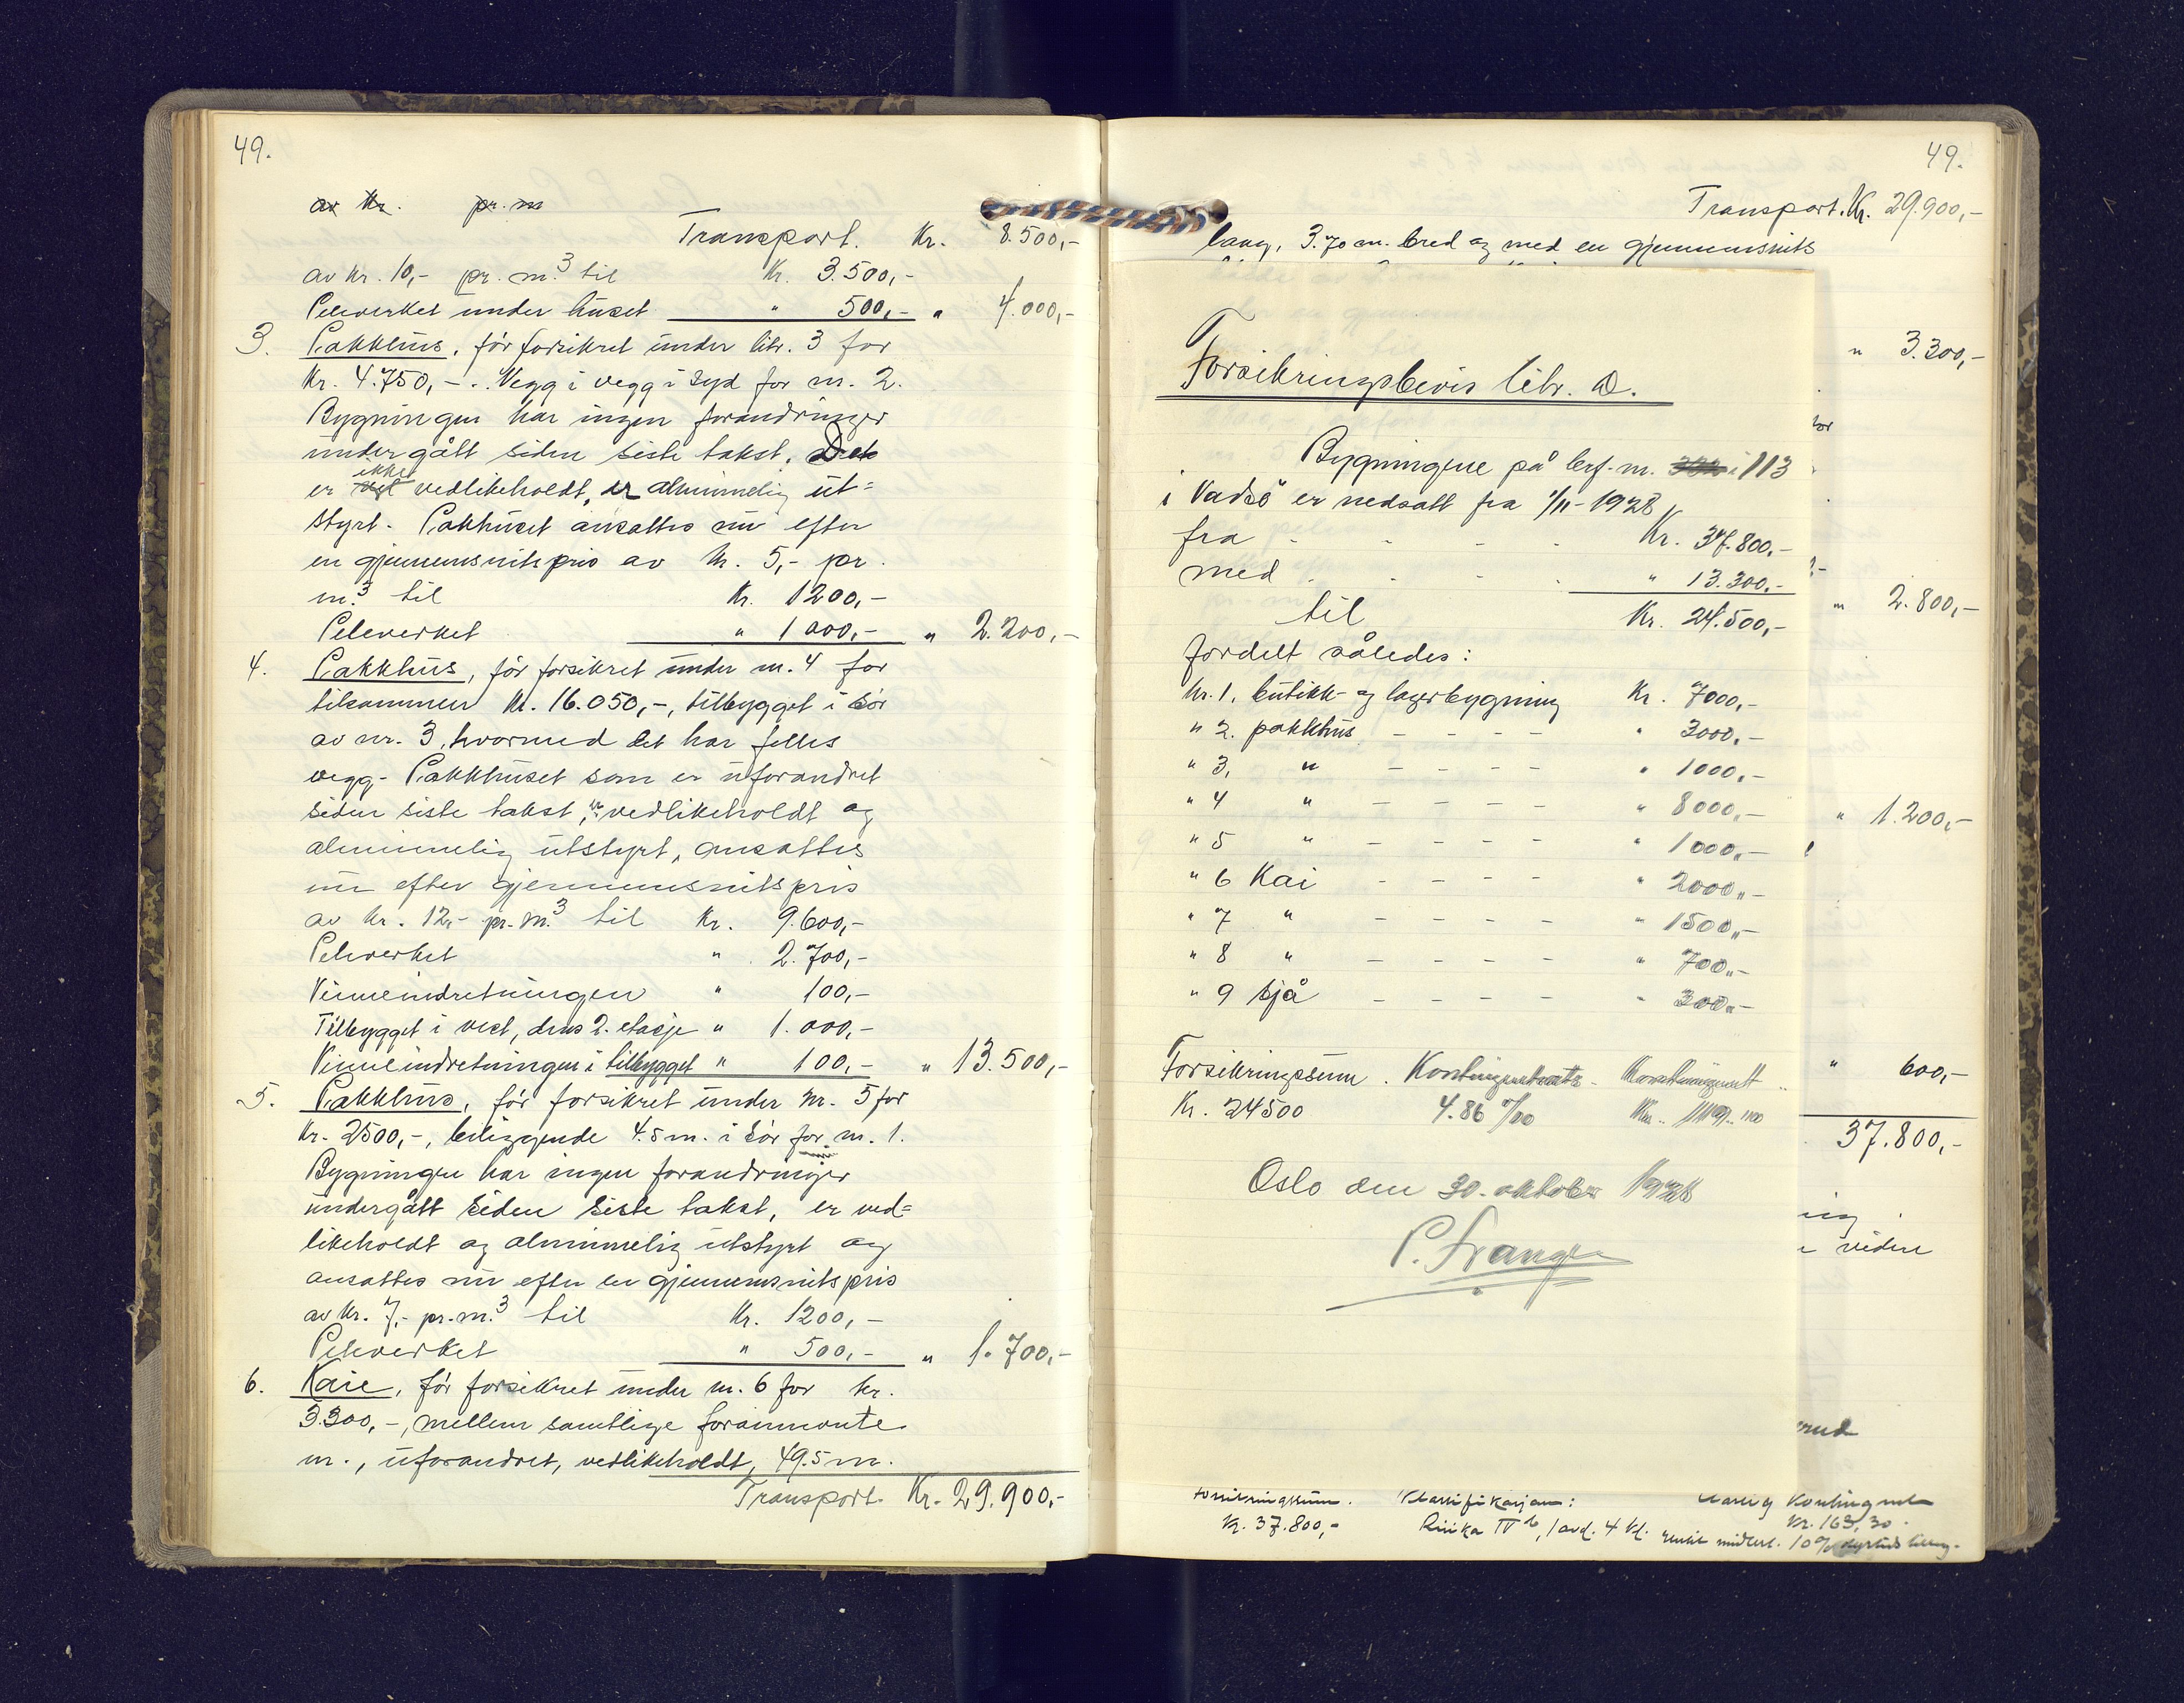 49.
av Kr. pr. m
Transport. Kr. 8.500,-
av kr. 10,- pr. m.³ til Kr. 3.500,-
Peleverket under huset " 500,- " 4.000,-
3. Pakkhus, før forsikret under litr. 3 for
Kr. 4.750,-. Vegg i vegg i syd for nr. 2.
Bygningen har ingen forandringer
undergått siden siste takst. Det
ikke
er vel vedlikeholdt, er alminnelig ut=
styrt. Pakhuset ansattes nu efter
en gjennemsnitspris av kr. 5,- pr.
m.³ til Kr. 1200,-
Peleverket " 1000,- " 2.200,-
4. Pakkhus, før forsikret under nr. 4 for
tilsammen kr. 16.050,-, tilbygget i sør
av nr. 3, hvormed det har felles
vegg. Pakkhuset som er uforandret
siden siste takst, er vedlikeholdt og
alminnelig utstyrt, ansattes
nu efter gjennemsnitspris
av kr. 12,- pr. m.³ til Kr. 9.600,-
Peleverket " 2.700,-
Vinneindretningen " 100,-
Tilbygget i vest, dens 2. etasje " 1.000,-
Vinneindretningen i tilbygget " 100,- " 13.500,-
5. Pakkhus, før forsikret under nr. 5 for
Kr. 2500,-, beliggende 4.5 m. i sør for nr. 1.
Bygningen har ingen forandringer
undergått siden siste takst, er ved=
likeholdt og alminnelig utstyrt og
ansattes nu efter en gjennemsnitspris
av kr. 7,- pr. m.³ til Kr. 1200,-
Peleverket " 500,- " 1.700,-
6. Kaie, før forsikret under nr. 6 for kr.
3.300,-, mellem samtlige forannevnte
nr., uforandret, vedlikeholdt, 49.5 m.
Transport Kr. 29.900,-
49.
Transport. Kr. 29.900,-
lang, 3.70 m. bred og med en gjennemsnits
" 3.300,-
Forsikringsbevis litr. D.
Bygningene på brf. nr. 113
i Vadsø er nedsatt fra 1/11-1928
fra - - - - Kr. 37.800,-
med - - - - " 13.300,-
til Kr. 24.500,-
" 2.800,-
fordelt således:
Nr. 1. butikk- og lagerbygning Kr. 7000,-
" 2. pakkhus - - - - " 3000,-
" 3, " - - - - " 1000,-
" 4 " - - - - " 8000,-
" 1.200,-
" 5 " - - - - " 1000,-
" 6 Kai - - - - " 2000,-
" 7 " - - - - " 1500,-
" 8 " - - - - " 700,-
" 9 sjå - - - - " 300,-
Forsikringssum. Kontingentsats. Kontingent
" 600,-
Kr. 24500 4.86 º/oo
37.800,-
Oslo den 30. oktober 1928
P. Frange
videre
Forsikringssum. Klassifikasjon: Aarlig Kontingent
Kr. 37.800,- Risika IV b, 1 avd. 4 kl. Kr. 163,30.
midlert. 10% dyrtids tillæg.